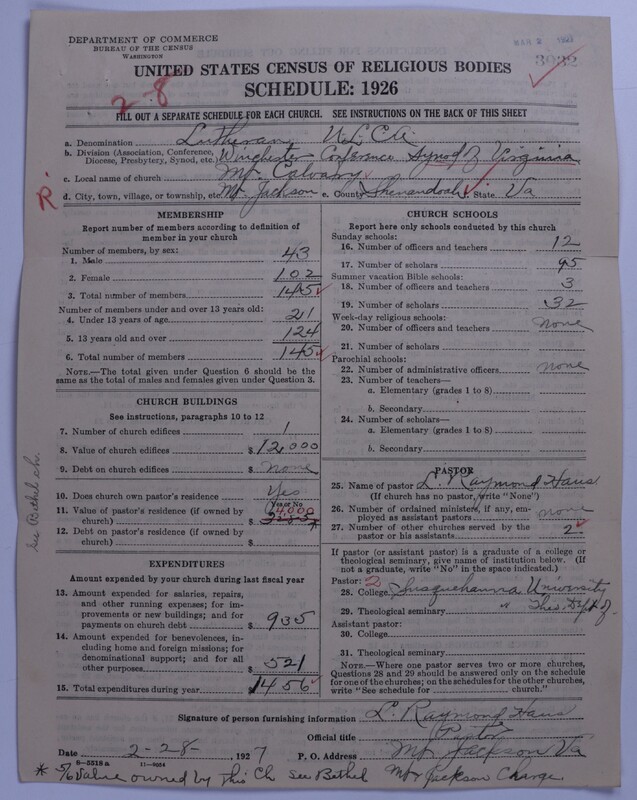 DEPARTMENT OF COMMERCE
BUREAU OF THE CENSUS
WASHINGTON
MAR 2 1927
3032
UNITED STATES CENSUS OF RELIGIOUS BODIES
SCHEDULE: 1926
2-8
FILL OUT A SEPARATE SCHEDULE FOR EACH CHURCH. SEE INSTRUCTIONS ON THE BACK OF THIS SHEET
a. Denomination Lutheran U L C A
b. Division (Association, Conference, Diocese, Presbytery, Synod, etc.) Winchester Conference Synod of Virginia
c. Local name of church Mt. Calvary
R
d. City, town, village, or township, etc. Mt. Jackson e. County Shenandoah f. State Va
MEMBERSHIP
Report number of members according to definition of
member in your church
Number of members, by sex:
1. Male 43
2. Female 102
3. Total number of members 145
Number of members under and over 13 years old:
4. Under 13 years of age 21
5. 13 years old and over 124
6. Total number of members 145
NOTE.—The total given under Question 6 should be
the same as the total of males and females given under Question 3.
CHURCH BUILDINGS
See instructions, paragraphs 10 to 12
7. Number of church edifices 1
8. Value of church edifices $ 12,000
9. Debt on church edifices $ None
10. Does church own pastor's residence Yes
Yes or No
11. Value of pastor's residence (if owned by
church) $ 4,000
12. Debt on pastor's residence (if owned by
church) $
EXPENDITURES
Amount expended by your church during last fiscal year
13. Amount expended for salaries, repairs,
and other running expenses; for im-
provements or new buildings; and for
payments on church debt $ 935
14. Amount expended for benevolences, in-
cluding home and foreign missions; for
denominational support; and for all
other purposes $ 521
15. Total expenditures during year $ 1456
CHURCH SCHOOLS
Report here only schools conducted by this church
Sunday schools:
16. Number of officers and teachers 12
17. Number of scholars 95
Summer vacation Bible schools:
18. Number of officers and teachers 3
19. Number of scholars 32
Week-day religious schools:
20. Number of officers and teachers none
21. Number of scholars
Parochial schools:
22. Number of administrative officers none
23. Number of teachers—
a. Elementary (grades 1 to 8)
b. Secondary
24. Number of scholars—
a. Elementary (grades 1 to 8)
b. Secondary
PASTOR
25. Name of pastor L. Raymond Haus
(If church has no pastor, write "None")
26. Number of ordained ministers, if any, em-
ployed as assistant pastors none
27. Number of other churches served by the
pastor or his assistants 2
If pastor (or assistant pastor) is a graduate of a college or
theological seminary, give name of institution below. (If
not a graduate, write "No" in the space indicated.)
Pastor: 2
28. College Susquehanna University
29. Theological seminary " Theo. Dept of
Assistant pastor:
30. College
31. Theological seminary
NOTE.—Where one pastor serves two or more churches,
Questions 28 and 29 should be answered only on the schedule
for one of the churches; on the schedules for the other churches,
write "See schedule for church."
See Bethel Ch.
Signature of person furnishing information L. Raymond Haus
Official title Pastor
Date 2-28- 1927 P. O. Address Mt. Jackson Va
8—5518 a 11—9024
* 5/6 Value owned by This Ch See Bethel Mt Jackson Charge.